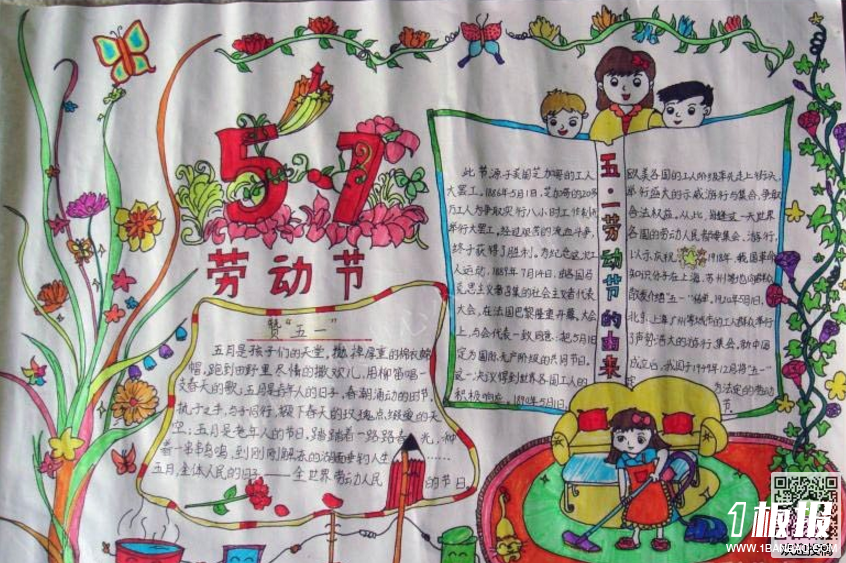 5·1
劳动节
赞“五一”
五月是孩子们的天堂,撇掉厚重的棉衣棉
帽,跑到田野里尽情的撒欢儿,用柳笛唱一
支春天的歌;五月是青年人的日子,春潮涌动的田节,
执子之手,与子同行,
空;五月是老年人的节日,踏踏着一路路春光,种
着一串串鸟鸣,到刚刚解冻的湖面垂钓人生……
五月,全体人民的日子——全世界劳动人民的节日
五·一劳动节的由来
此节源于美国芝加哥的工人
大罢工。1886年5月1日,芝加哥的20多
万工人为争取实行八小时工作制而
举行大罢工,经过艰苦的流血斗争,
终于获得了胜利。为纪念这次工
人运动,1889年7月14日,由各国马
克思主义者召集的社会主义者代表
大会,在法国巴黎隆重开幕。大会
上,与会代表一致同意:把5月1日
定为国际无产阶级的共同节日。
这一决议得到世界各国工人的
积极响应。1890年5月1日,
欧美各国的工人阶级率先走上街头,
举行盛大的示威游行与集会,争取
合法权益。从此,每逢这一天世界
各国的劳动人民都要集会、游行,
以示庆祝。1918年,我国革命
知识分子在上海、苏州等地向群众
散发介绍“五一”传单。1920年5月1日,
北京、上海、广州等城市的工人群众举行
了声势浩大的游行、集会。新中国
成立后,我国于1949年12月将“五一”
定为法定的劳动
节。
1板报
WWW.1BANBAO.COM